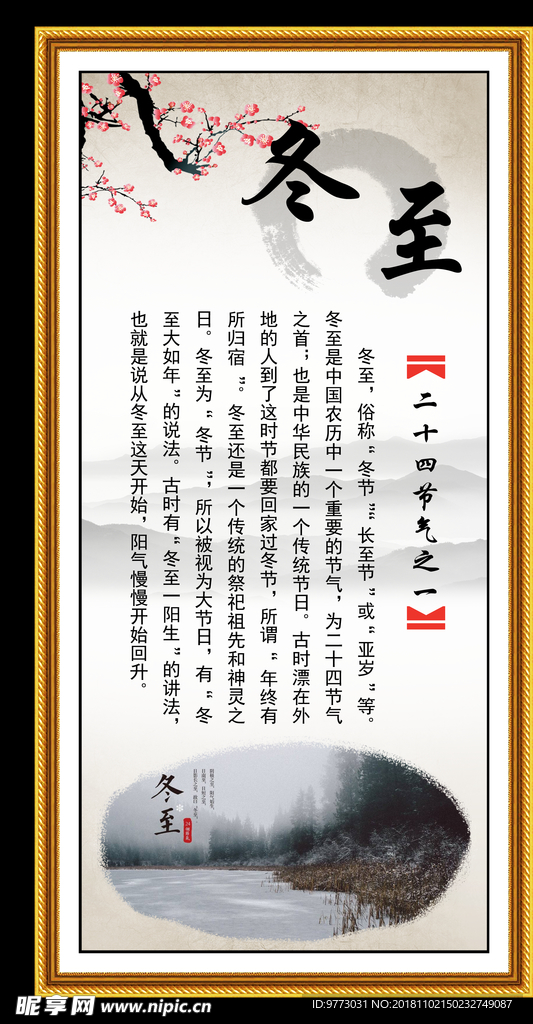 冬至
【二十四节气之一】
冬至，俗称“冬节”“长至节”或“亚岁”等。
冬至是中国农历中一个重要的节气，为二十四节气
之首；也是中华民族的一个传统节日。古时漂在外
地的人到了这时节都要回家过冬节，所谓“年终有
所归宿”。冬至还是一个传统的祭祀祖先和神灵之
日。冬至为“冬节”，所以被视为大节日，有“冬
至大如年”的说法。古时有“冬至一阳生”的讲法，
也就是说从冬至这天开始，阳气慢慢开始回升。
冬至
昵享网 www.nipic.cn
ID:9773031 NO:20181102150232749087